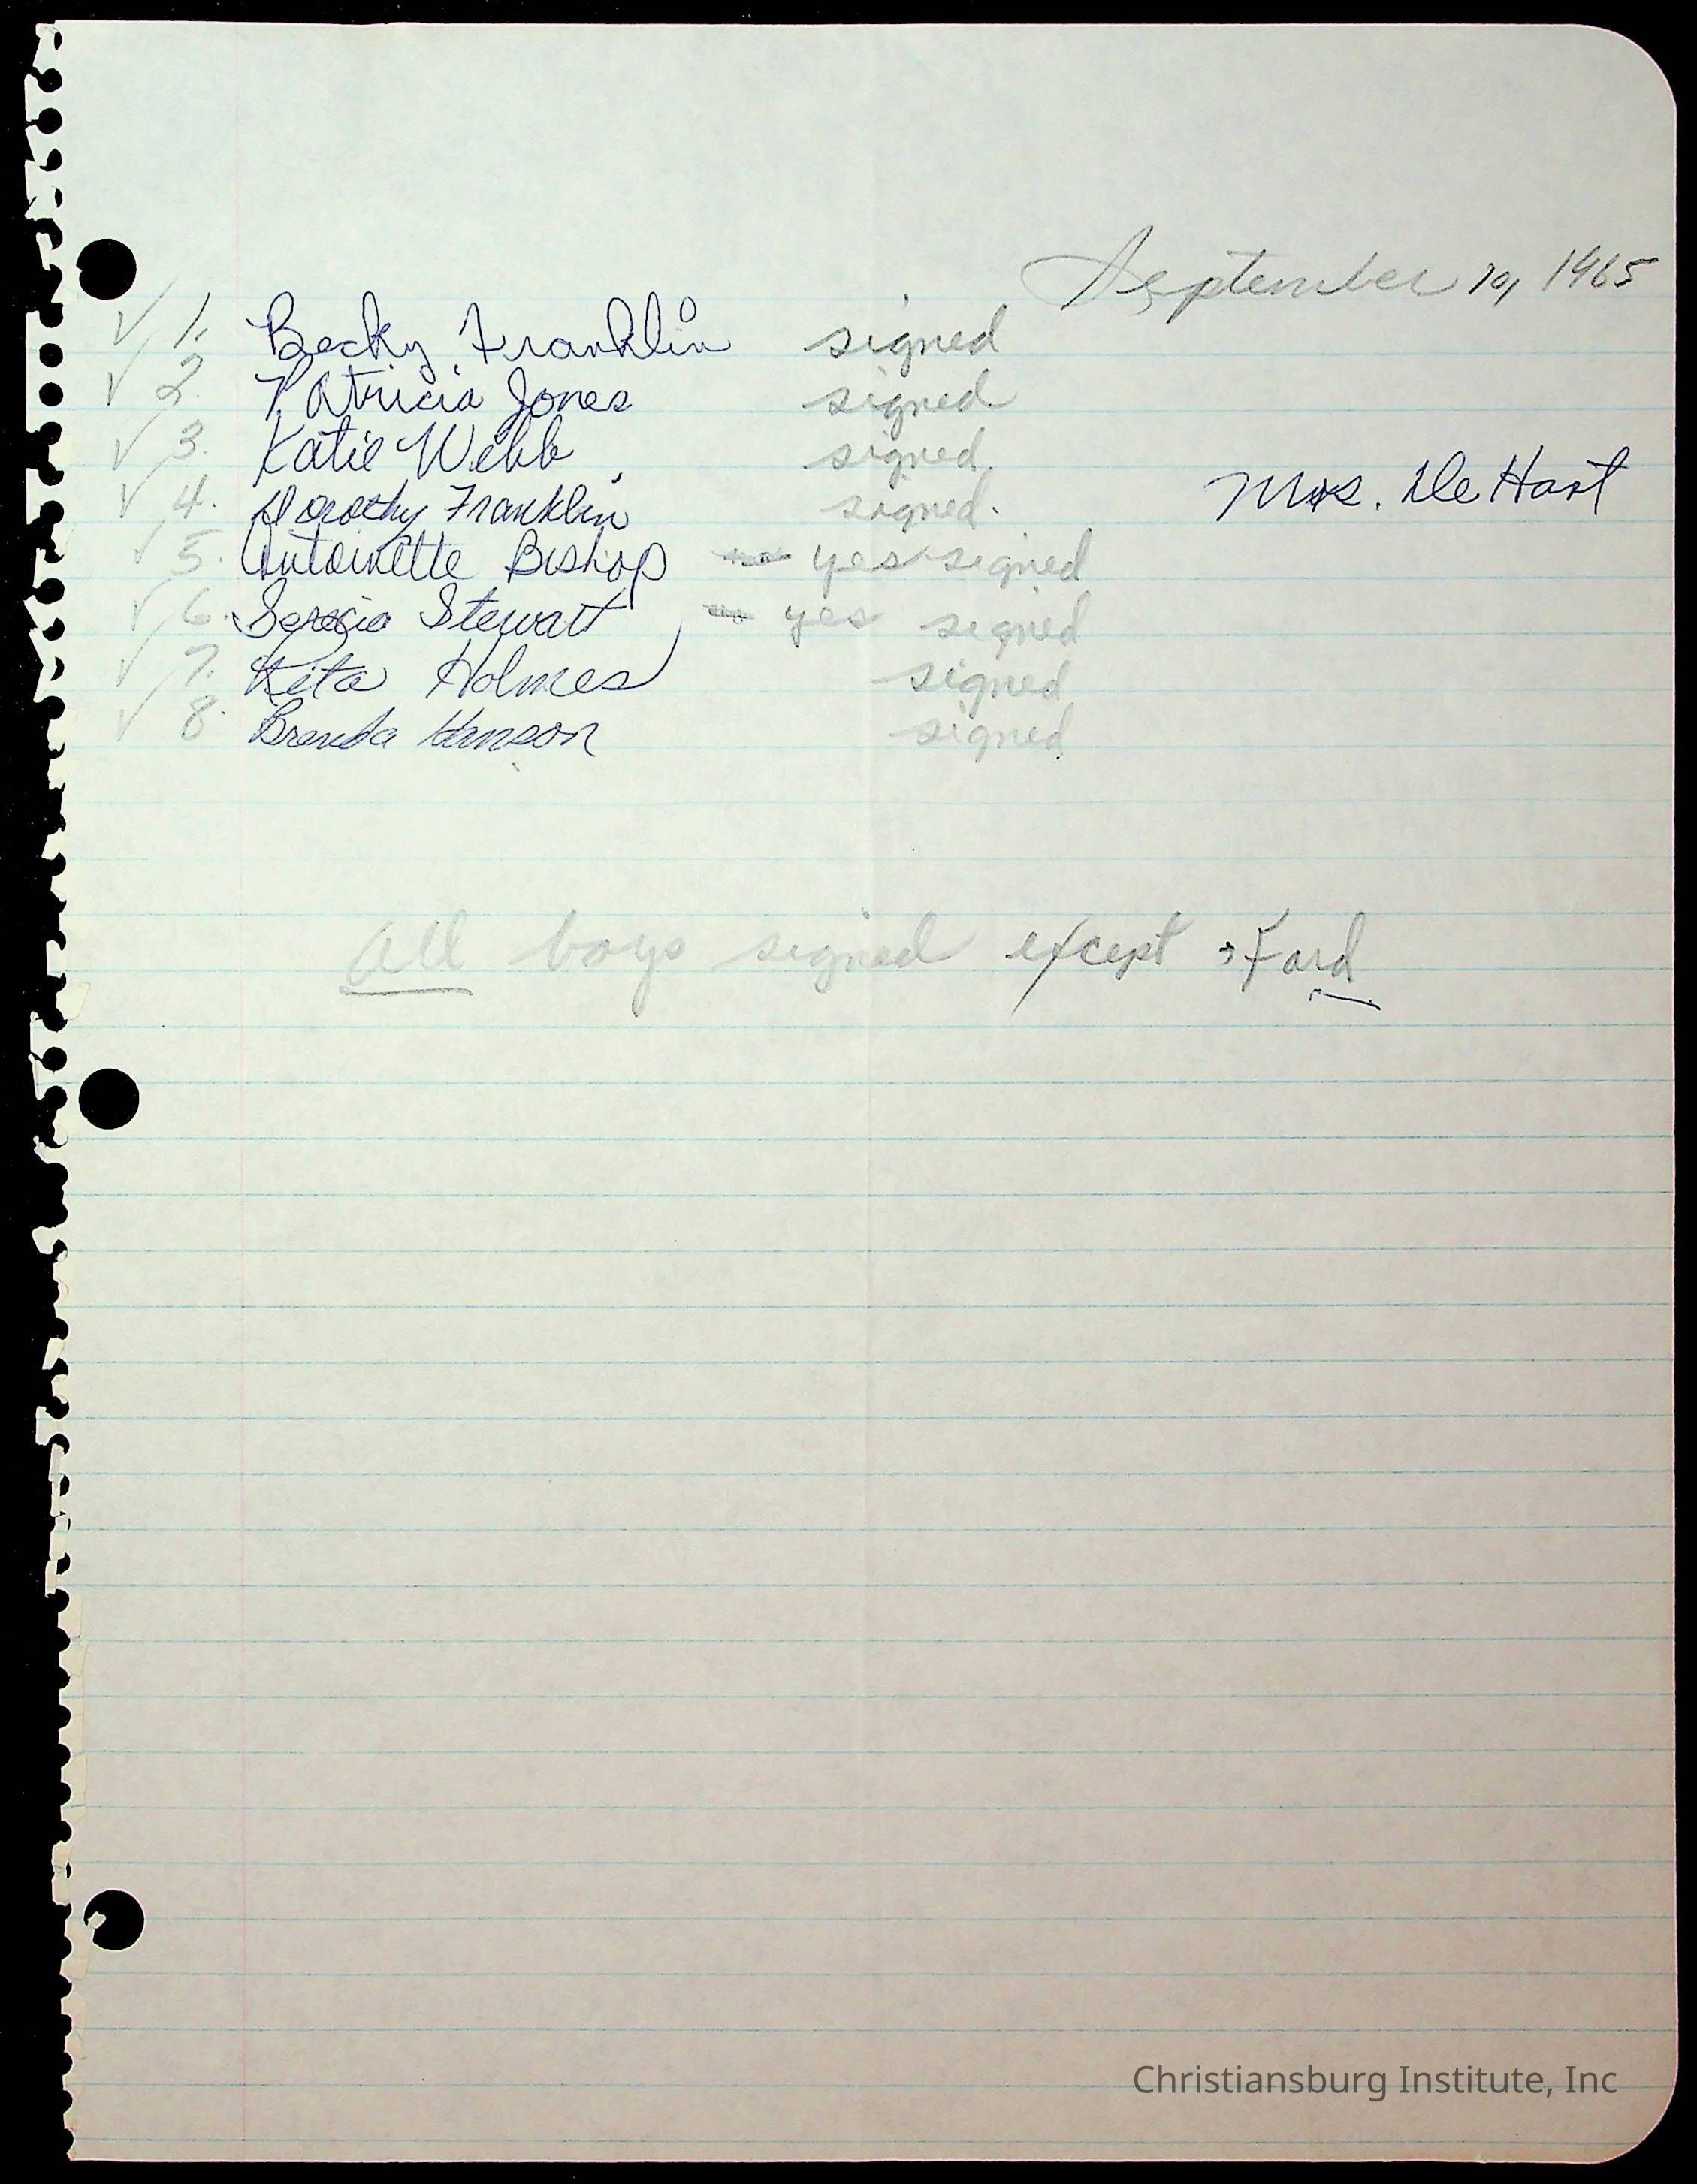 September 10, 1965
✓ 1. Becky Franklin signed
✓ 2. Patricia Jones signed
✓ 3. Katie Webb signed
Mrs. DeHart
✓ 4. Dorothy Franklin signed.
✓ 5. Antoinette Bishop no yes signed
✓ 6. Stewart no yes signed
✓ 7. Rita Holmes signed
✓ 8. Brenda signed
All boys signed except → Ford
Christiansburg Institute, Inc